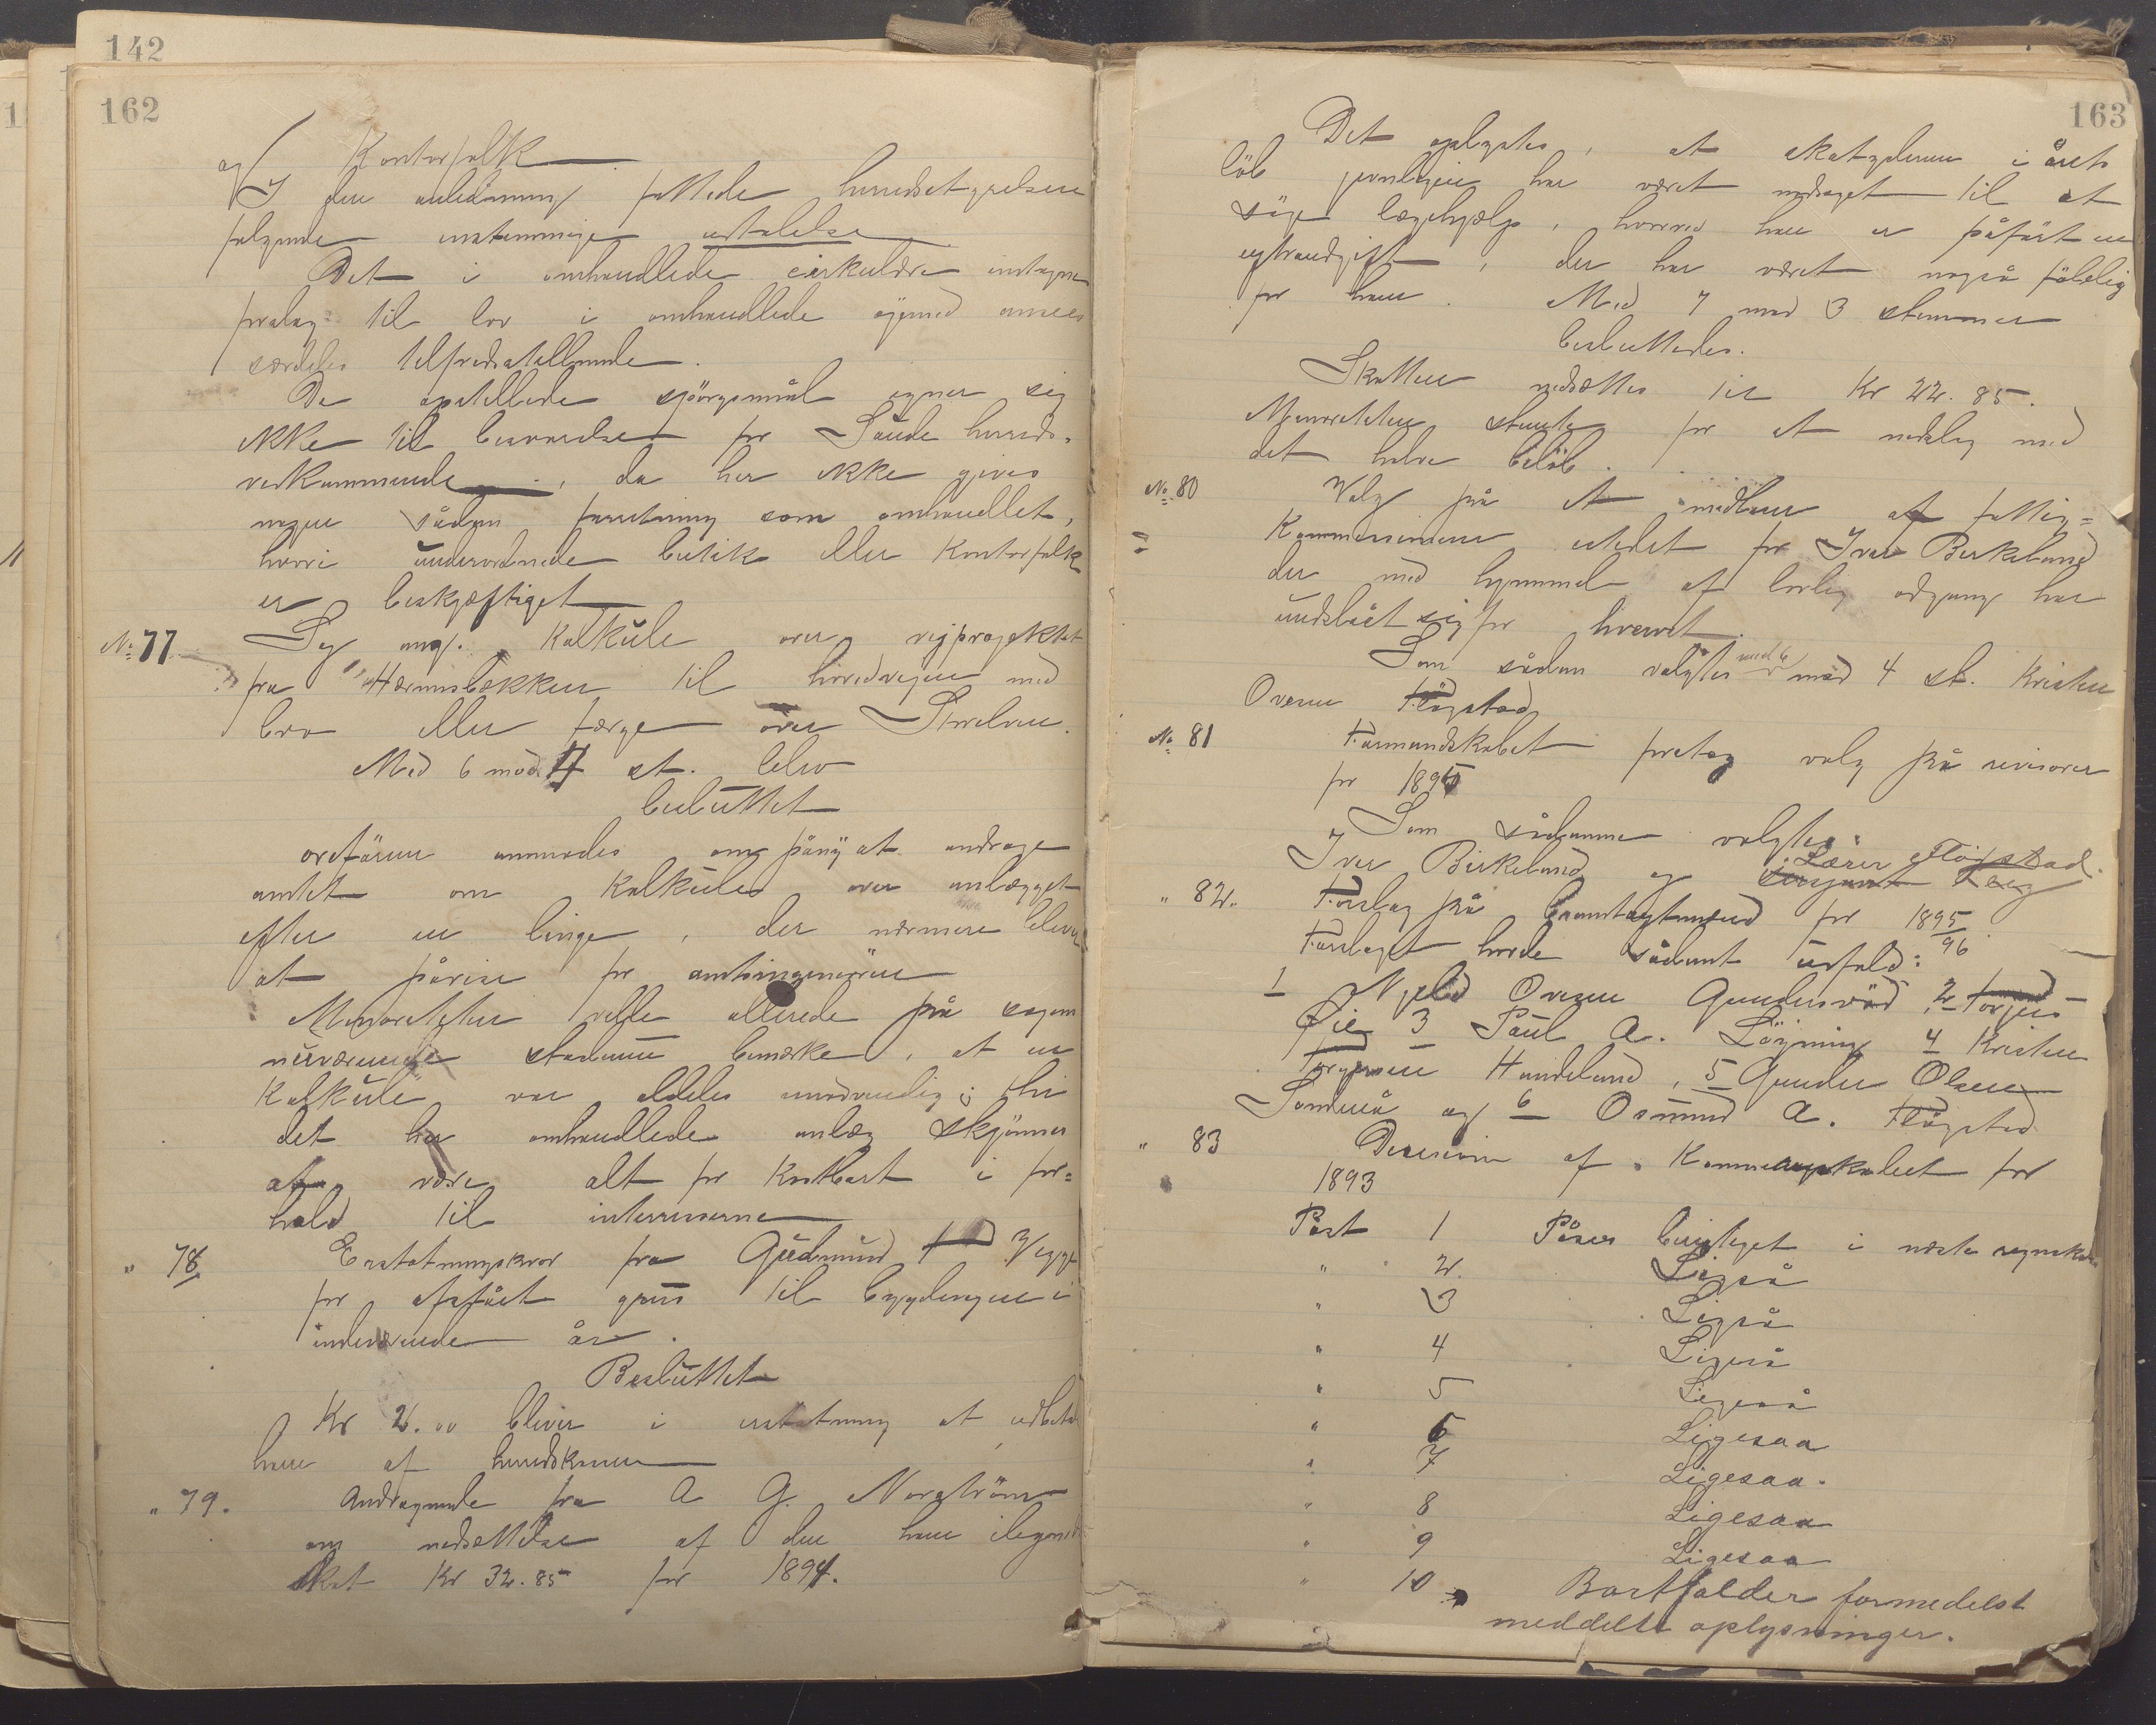 142
162
og Kontorfolk
I den anledning fattede herredsstyrelsen
følgende enstemmige udtalelse
Det i omhandlede cirkulære indtagne
forslag til lov i omhandlede øjemed ansees
særdeles tilfredsstillende.
De opstillede spörgsmål egner sig
ikke til besvarelse for Sande herreds-
vedkommende, da her ikke gives
nogen sådan forretning som omhandlet,
hvori underordnede butik eller Kontorfolk
er beskjæftiget
No 77 Sag ang. Kalkule over vejprosjektet
fra Hærumsbækken til hovedvejen med
bro eller færge over Storelven.
Med 6 mod 4 st. blev
besluttet
ordføren anmodes om påny at andrage
amtet om Kalkule over anlægget
efter en linge, der nærmere bliver
at påvise for amtsingeniøren
Minoriteten vilde allerede på sagens
nuværende stadium bemærke, at en
Kalkule var aldeles unødvendig; thi
det her omhandlede anlæg skjønnes
at være alt for kostbart i for=
hold til interesserne
" 78 Erstatningskrav fra Gudmund Vegge
for afståt grus til bygdevejen i
indeværende år.
Besluttet
Kr 2.00 bliver i erstatning at udbetale
ham af herredskassen
" 79. Andragende fra A G. Norström
om nedsættelse af den ham ilignede
skat Kr 32.85 for 1894.
163
Det oplystes, at skatyderen i årets
löb jevnligen har været nødsaget til at
söge lægehjælp, hvorved han er påført en
extraudgift, der har været også følelig
for ham. Med 7 mod 3 stemmer
besluttedes.
Skatten nedsættes til Kr 22.85.
Minoriteten stemte for et nedslag med
det halve beløb.
No 80 Valg på et medlem af fattig=
Kommissionen istedet for Iver Birkeland
der med hjemmel af lovlig adgang har
undslåt sig for hvervet.
Som sådan valgtes med 6 mod 4 st. Kristen
Ovesen Fløgstad
No 81 Formandskabet foretog valg på revisorer
for 1895
Som sådanne valgtes:
Iver Birkeland og Lærer Fløgstad.
" 82. Forslag på branntagtmænd for 1895/96
Forslaget havde sådant udfald:
1 Njeld Ovesen Gundersrød, 2 Torjus
Øie 3 Paul A. Lögning 4 Kristen
Torjusen Handeland, 5 Gunder Olsen
Sandnå og 6 Osmund A. Fløgstad
" 83 Decision af Kommuneregnskabet for
1893
Post 1 Påsees berigtiget i næste regnskab
" 2. Ligeså
" 3 Ligeså
" 4 Ligeså
" 5 Ligeså
" 6 Ligesaa
" 7 Ligesaa.
" 8 Ligesaa
" 9 Ligesaa
" 10 Bortfalder formedelst
meddelte oplysninger.